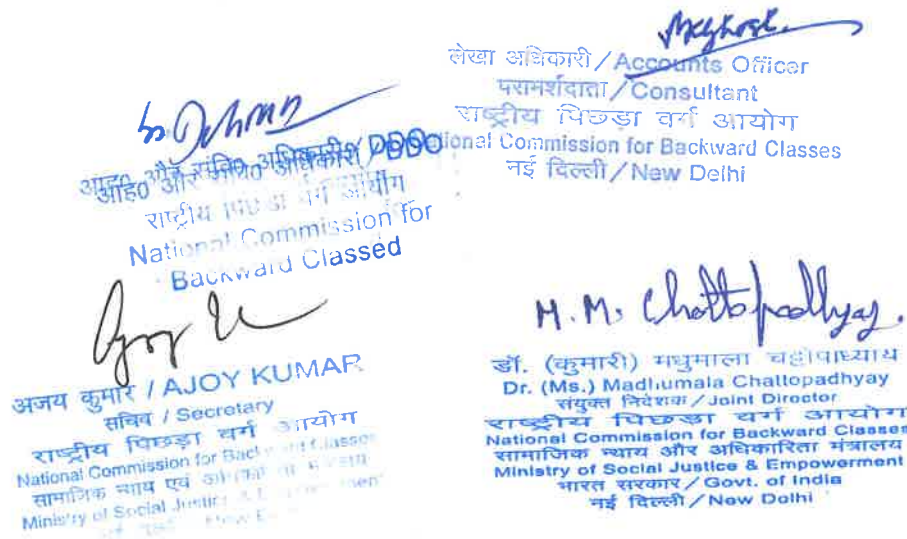 लेखा अधिकारी / Accounts Officer
परामर्शदाता / Consultant
राष्ट्रीय पिछड़ा वर्ग आयोग
National Commission for Backward Classes
नई दिल्ली / New Delhi
आह० और संवि० अधिकारी / DDO
राष्ट्रीय पिछड़ा वर्ग आयोग
National Commission for
Backward Classed
अजय कुमार / AJOY KUMAR
सचिव / Secretary
राष्ट्रीय पिछड़ा वर्ग आयोग
National Commission for Backward Classes
सामाजिक न्याय एवं
Ministry of Social Justice &
M. M. Chattopadhyay.
डॉ. (कुमारी) मधुमाला चट्टोपाध्याय
Dr. (Ms.) Madhumala Chattopadhyay
संयुक्त निदेशक / Joint Director
राष्ट्रीय पिछड़ा वर्ग आयोग
National Commission for Backward Classes
सामाजिक न्याय और अधिकारिता मंत्रालय
Ministry of Social Justice & Empowerment
भारत सरकार / Govt. of India
नई दिल्ली / New Delhi